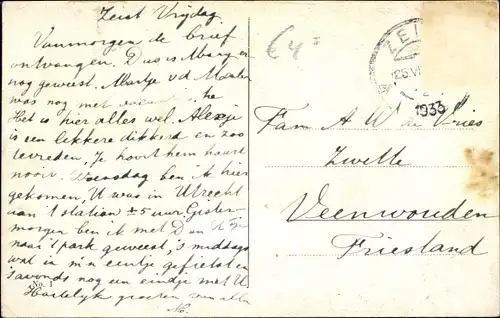 Zeist Vrijdag.
Vanmorgen de brief
ontvangen. Dus is Mary er
nog geweest. Martje v d Meulen
was nog met he
Het is hier alles wel. Alexje
is een lekkere dikkerd en zoo
tevreden, je hoort hem haast
nooit. Woensdag ben ik hier
gekomen, U was in Utrecht
aan 't station ± 5 uur Gister-
morgen ben ik met D en
naar 't park geweest, 's middags
wat in m'n eentje gefietst en
's avonds nog een eindje met U
Hartelijk groeten van allen
No.
No. 1
€ 4,=
ZEI
25.VI
1933
Fam A W de Vries
Zwette
Veenwouden
Friesland